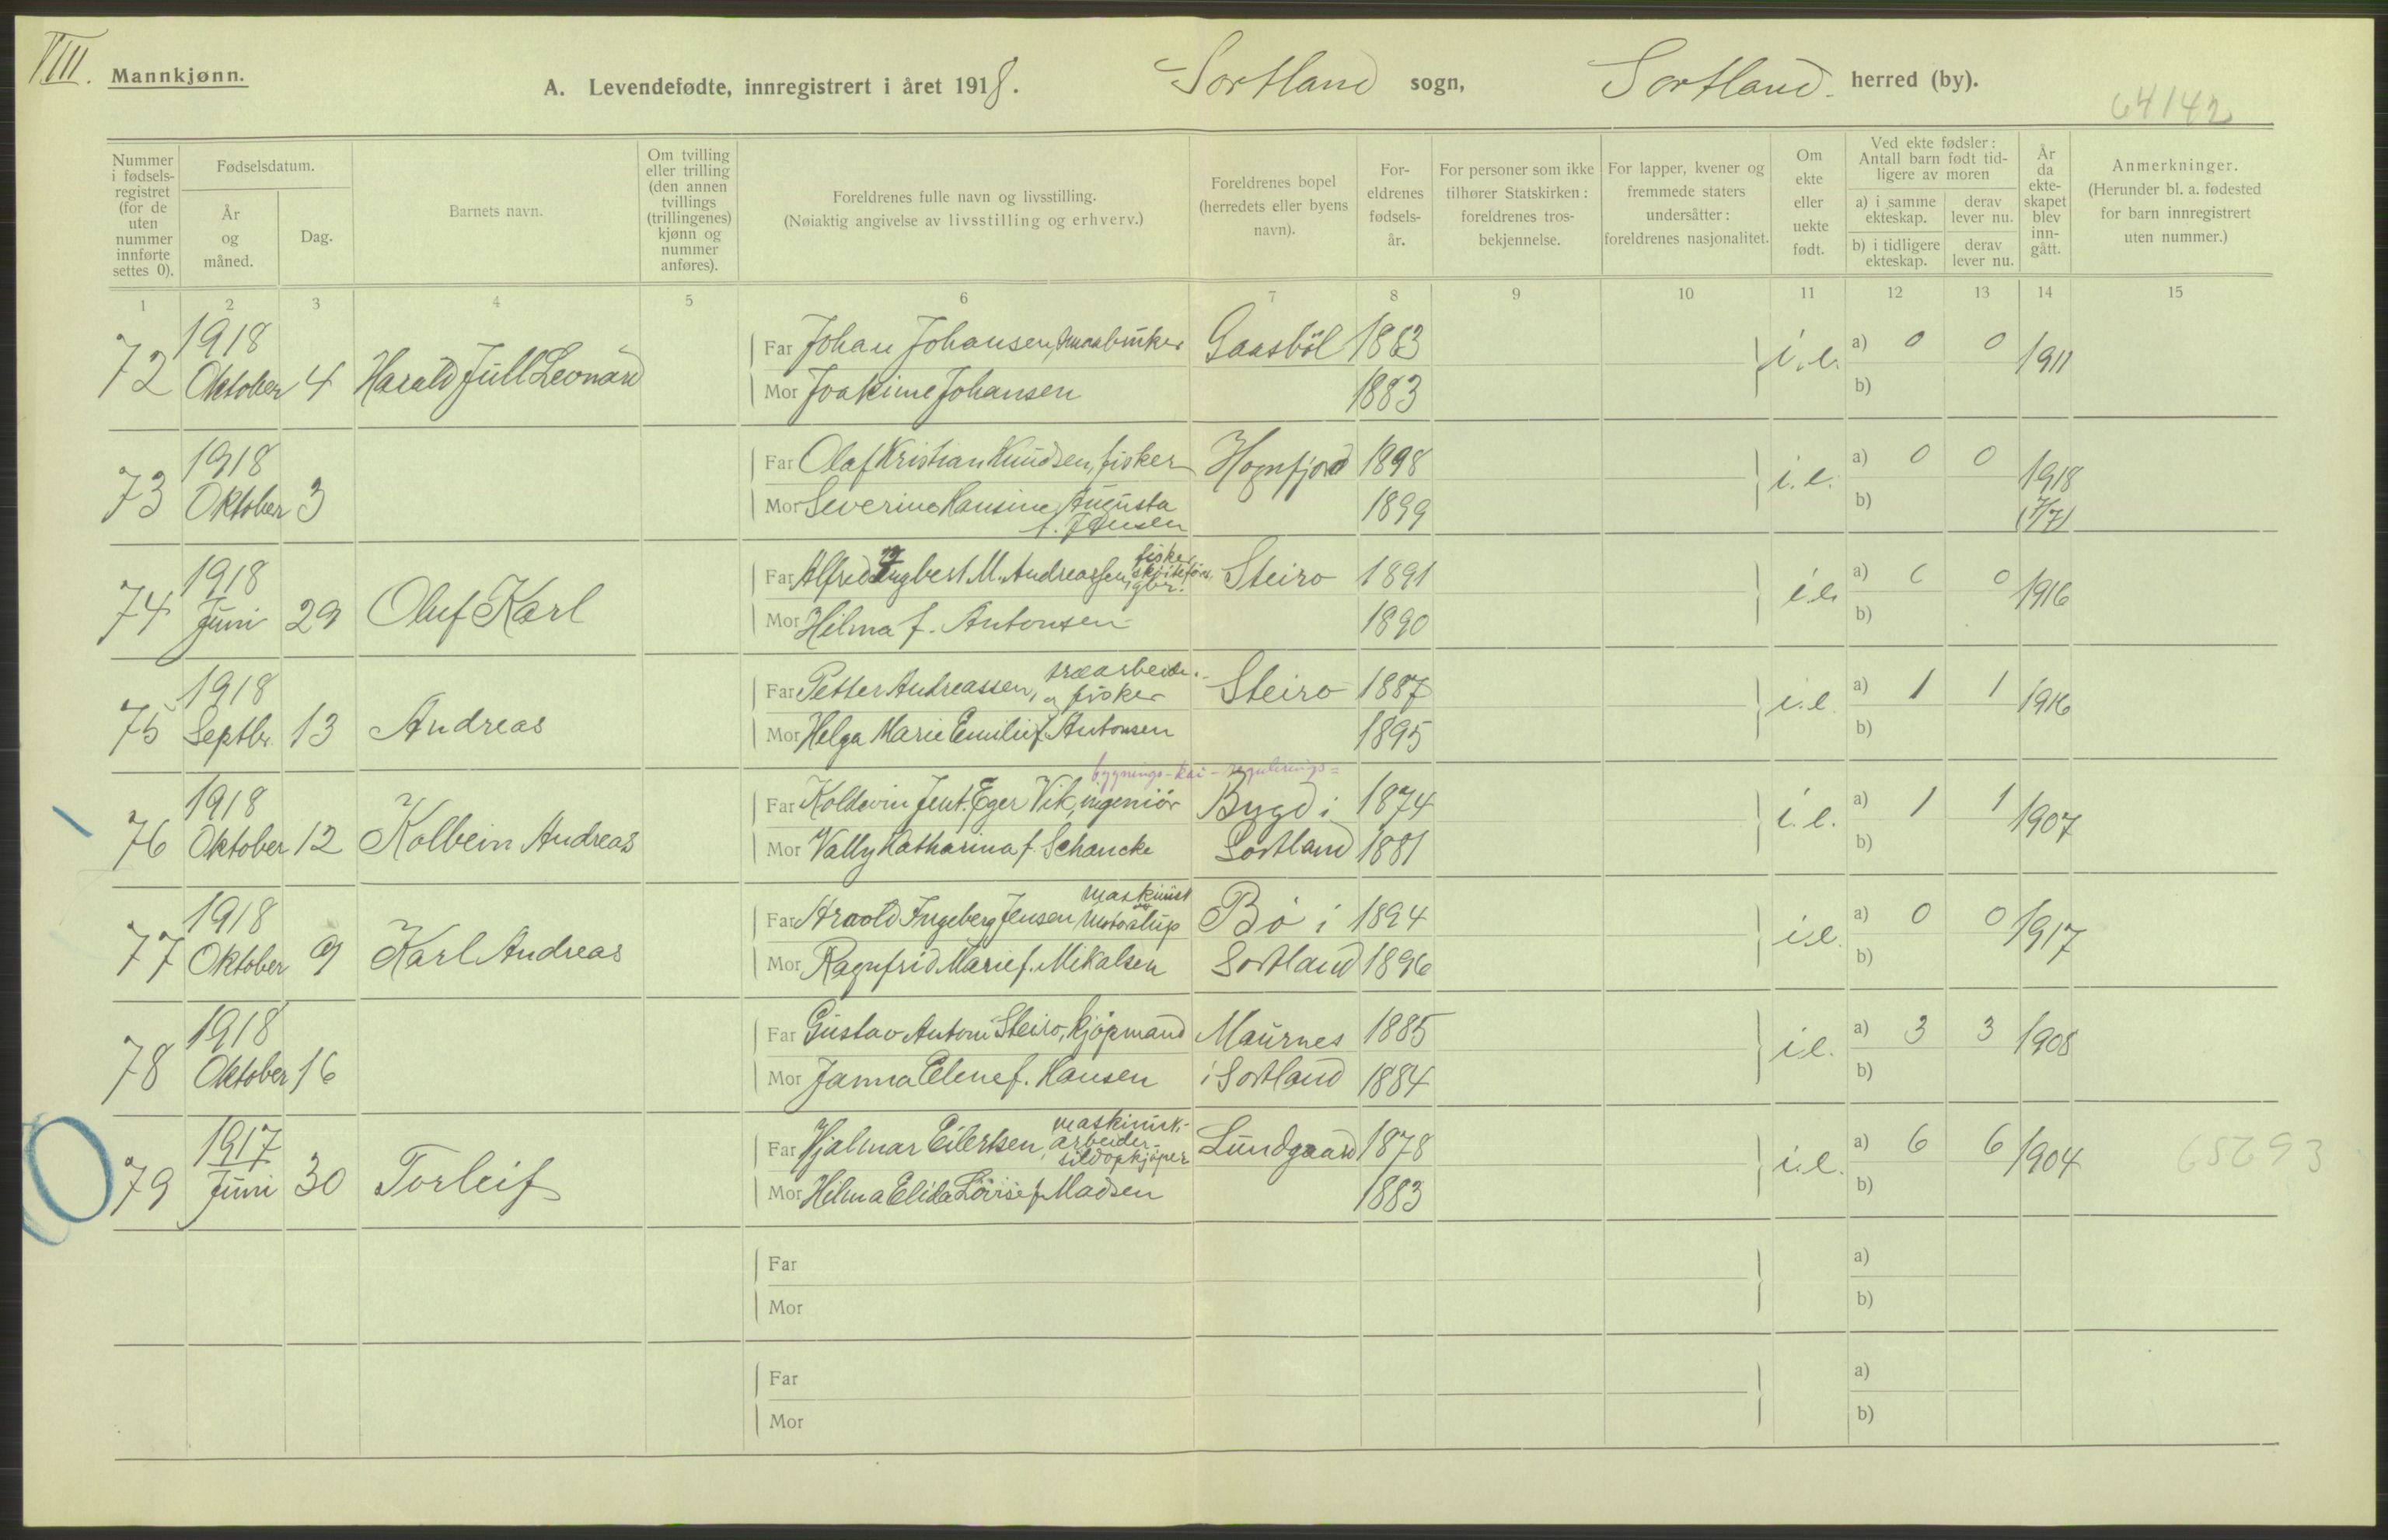 VIII. Mannkjønn.
A. Levendefødte, innregistrert i året 1918. Sortland sogn, Sortland herred (by).
64142
Nummer i fødselsregistret (for de uten nummer innførte settes 0).
Fødselsdatum.
År og måned.
Dag.
Barnets navn.
Om tvilling eller trilling (den annen tvillings (trillingenes) kjønn og nummer anføres).
Foreldrenes fulle navn og livsstilling.
(Nøiaktig angivelse av livsstilling og erhverv.)
Foreldrenes bopel (herredets eller byens navn).
Foreldrenes fødselsår.
For personer som ikke tilhører Statskirken: foreldrenes trosbekjennelse.
For lapper, kvener og fremmede staters undersåtter: foreldrenes nasjonalitet.
Om ekte eller uekte født.
Ved ekte fødsler: Antall barn født tidligere av moren
a) i samme ekteskap.
derav lever nu.
b) i tidligere ekteskap.
derav lever nu.
År da ekteskapet blev inngått.
Anmerkninger.
(Herunder bl. a. fødested for barn innregistrert uten nummer.)
1 2 3 4 5 6 7 8 9 10 11 12 13 14 15
72 1918 Oktober 4 Harald Jull Leonard
Far Johan Johansen, Gaasböl 1883 i.e. a) 0 0 1911
Mor Joakime Johansen 1883 b)
73 1918 Oktober 3
Far Olaf Kristian Knudsen, fisker Hognfjord 1898 i.e. a) 0 0 1918
Mor Severine Hansine Augusta f. Jensen 1899 b) (7/7)
74 1918 Juni 29 Oluf Karl
Far Alfred Ingbert M. Andreassen, fiske skøitefør, gbr. Steiro 1891 i.e. a) 0 0 1916
Mor Hilma f. Antonsen 1890 b)
75 1918 Septbr. 13 Andreas
Far Petter Andreassen, træarbeider og fisker Steiro 1887 i.e. a) 1 1 1916
Mor Helga Marie Emilie f. Antonsen 1895 b)
bygnings- kai- regulerings=
76 1918 Oktober 12 Kolbein Andreas
Far Koldevin Jent. Eger Vik, ingeniör Bygd i 1874 i.e. a) 1 1 1907
Mor Vally Katharina f. Schancke Sortland 1881 b)
77 1918 Oktober 9 Karl Andreas
Far Arnold Ingeberg Jensen maskinist Bö i 1894 i.e. a) 0 0 1917
Mor Ragnfrid Marie f. Mikalsen Sortland 1896 b)
78 1918 Oktober 16
Far Gustav Antoni Steiro, kjöpmand Maurnes 1885 i.e. a) 3 3 1908
Mor Janna Elene f. Hansen i Sortland 1884 b)
79 1917 Juni 30 Torleif
Far Hjalmar Eilertsen, maskinist- arbeider- sildopkjöper Lundgaard 1878 i.e. a) 6 6 1904 65293
Mor Hilma Elida Lövise f. Madsen 1883 b)
Far a)
Mor b)
Far a)
Mor b)